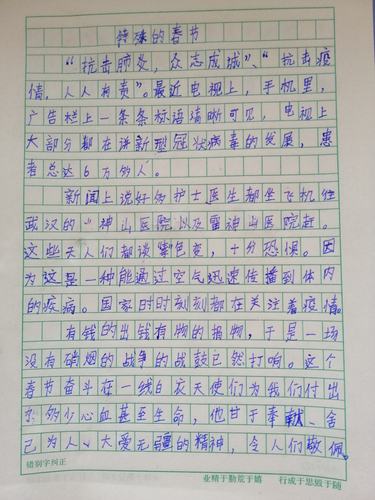 特殊的春节
“抗击肺炎，众志成城”、“抗击疫
情，人人有责”。最近电视上，手机里，
广告栏上一条条标语清晰可见，电视上
大部分都在讲新型冠状病毒的发展，患
者总达6万多人。
新闻上说好多护士医生都坐飞机往
武汉的“神山医院以及雷神山医院赶。
这些天人们都谈紫色变，十分恐惧。因
为这是一种能通过空气迅速传播到体内
的疾病。国家时时刻刻都在关注着疫情。
有钱的出钱有物的捐物，于是一场
没有硝烟的战争的战鼓已然打响。这个
春节奋斗在一线白衣天使们为我们付出
多少心血甚至生命，他甘于奉献、舍
己为人、大爱无疆的精神，令人们敬佩。
错别字纠正
业精于勤荒于嬉 行成于思毁于随